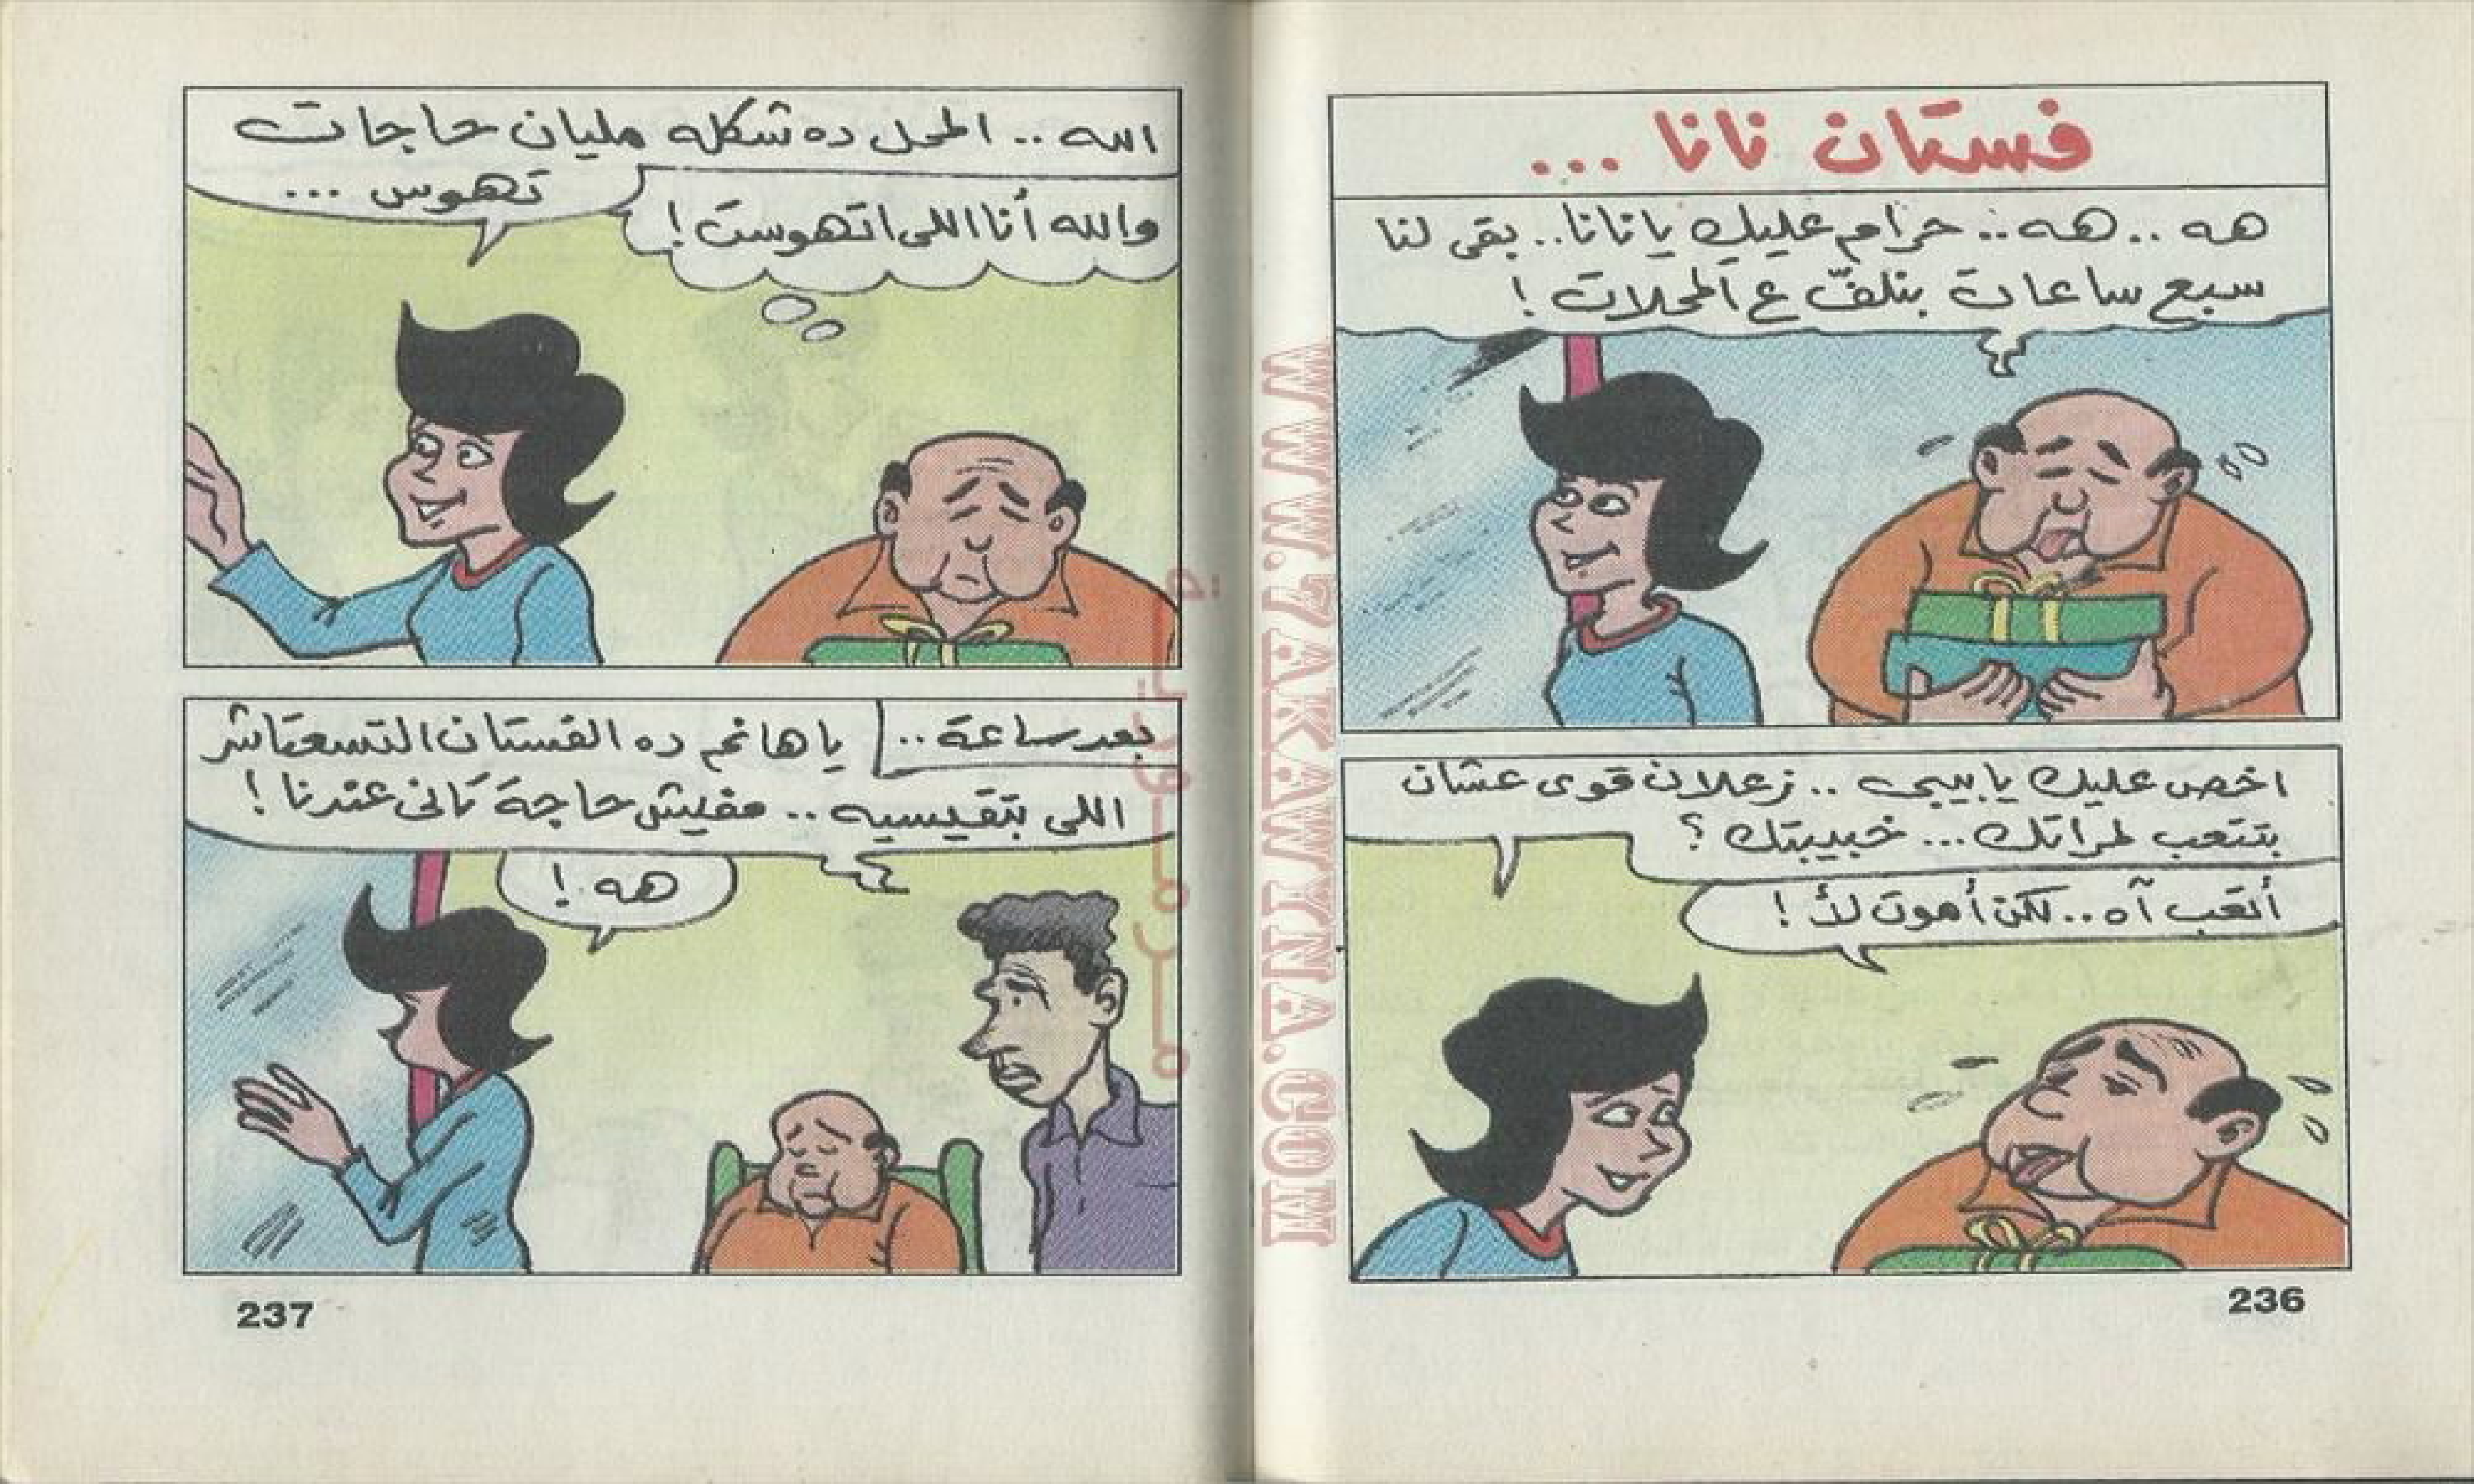 فستان نانا ...
هه .. هه .. حرام عليك يا نانا .. بقى لنا
سبع ساعات بنلفّ ع المحلات !
اخص عليك يا بيبى .. زعلان قوى عشان
بتتعب لمراتك ... حبيبتك ؟
أتعب آه .. لكن أموت لأ !
236
الله .. المحل ده شكله مليان حاجات
تهوس ...
والله أنا اللى اتهوست !
بعد ساعة ..
يا هانم ده الفستان التسعتاشر
اللى بتقيسيه .. مفيش حاجة تانى عندنا !
هه !
237
WWW.7AKAWYNA.COM
مرمورية